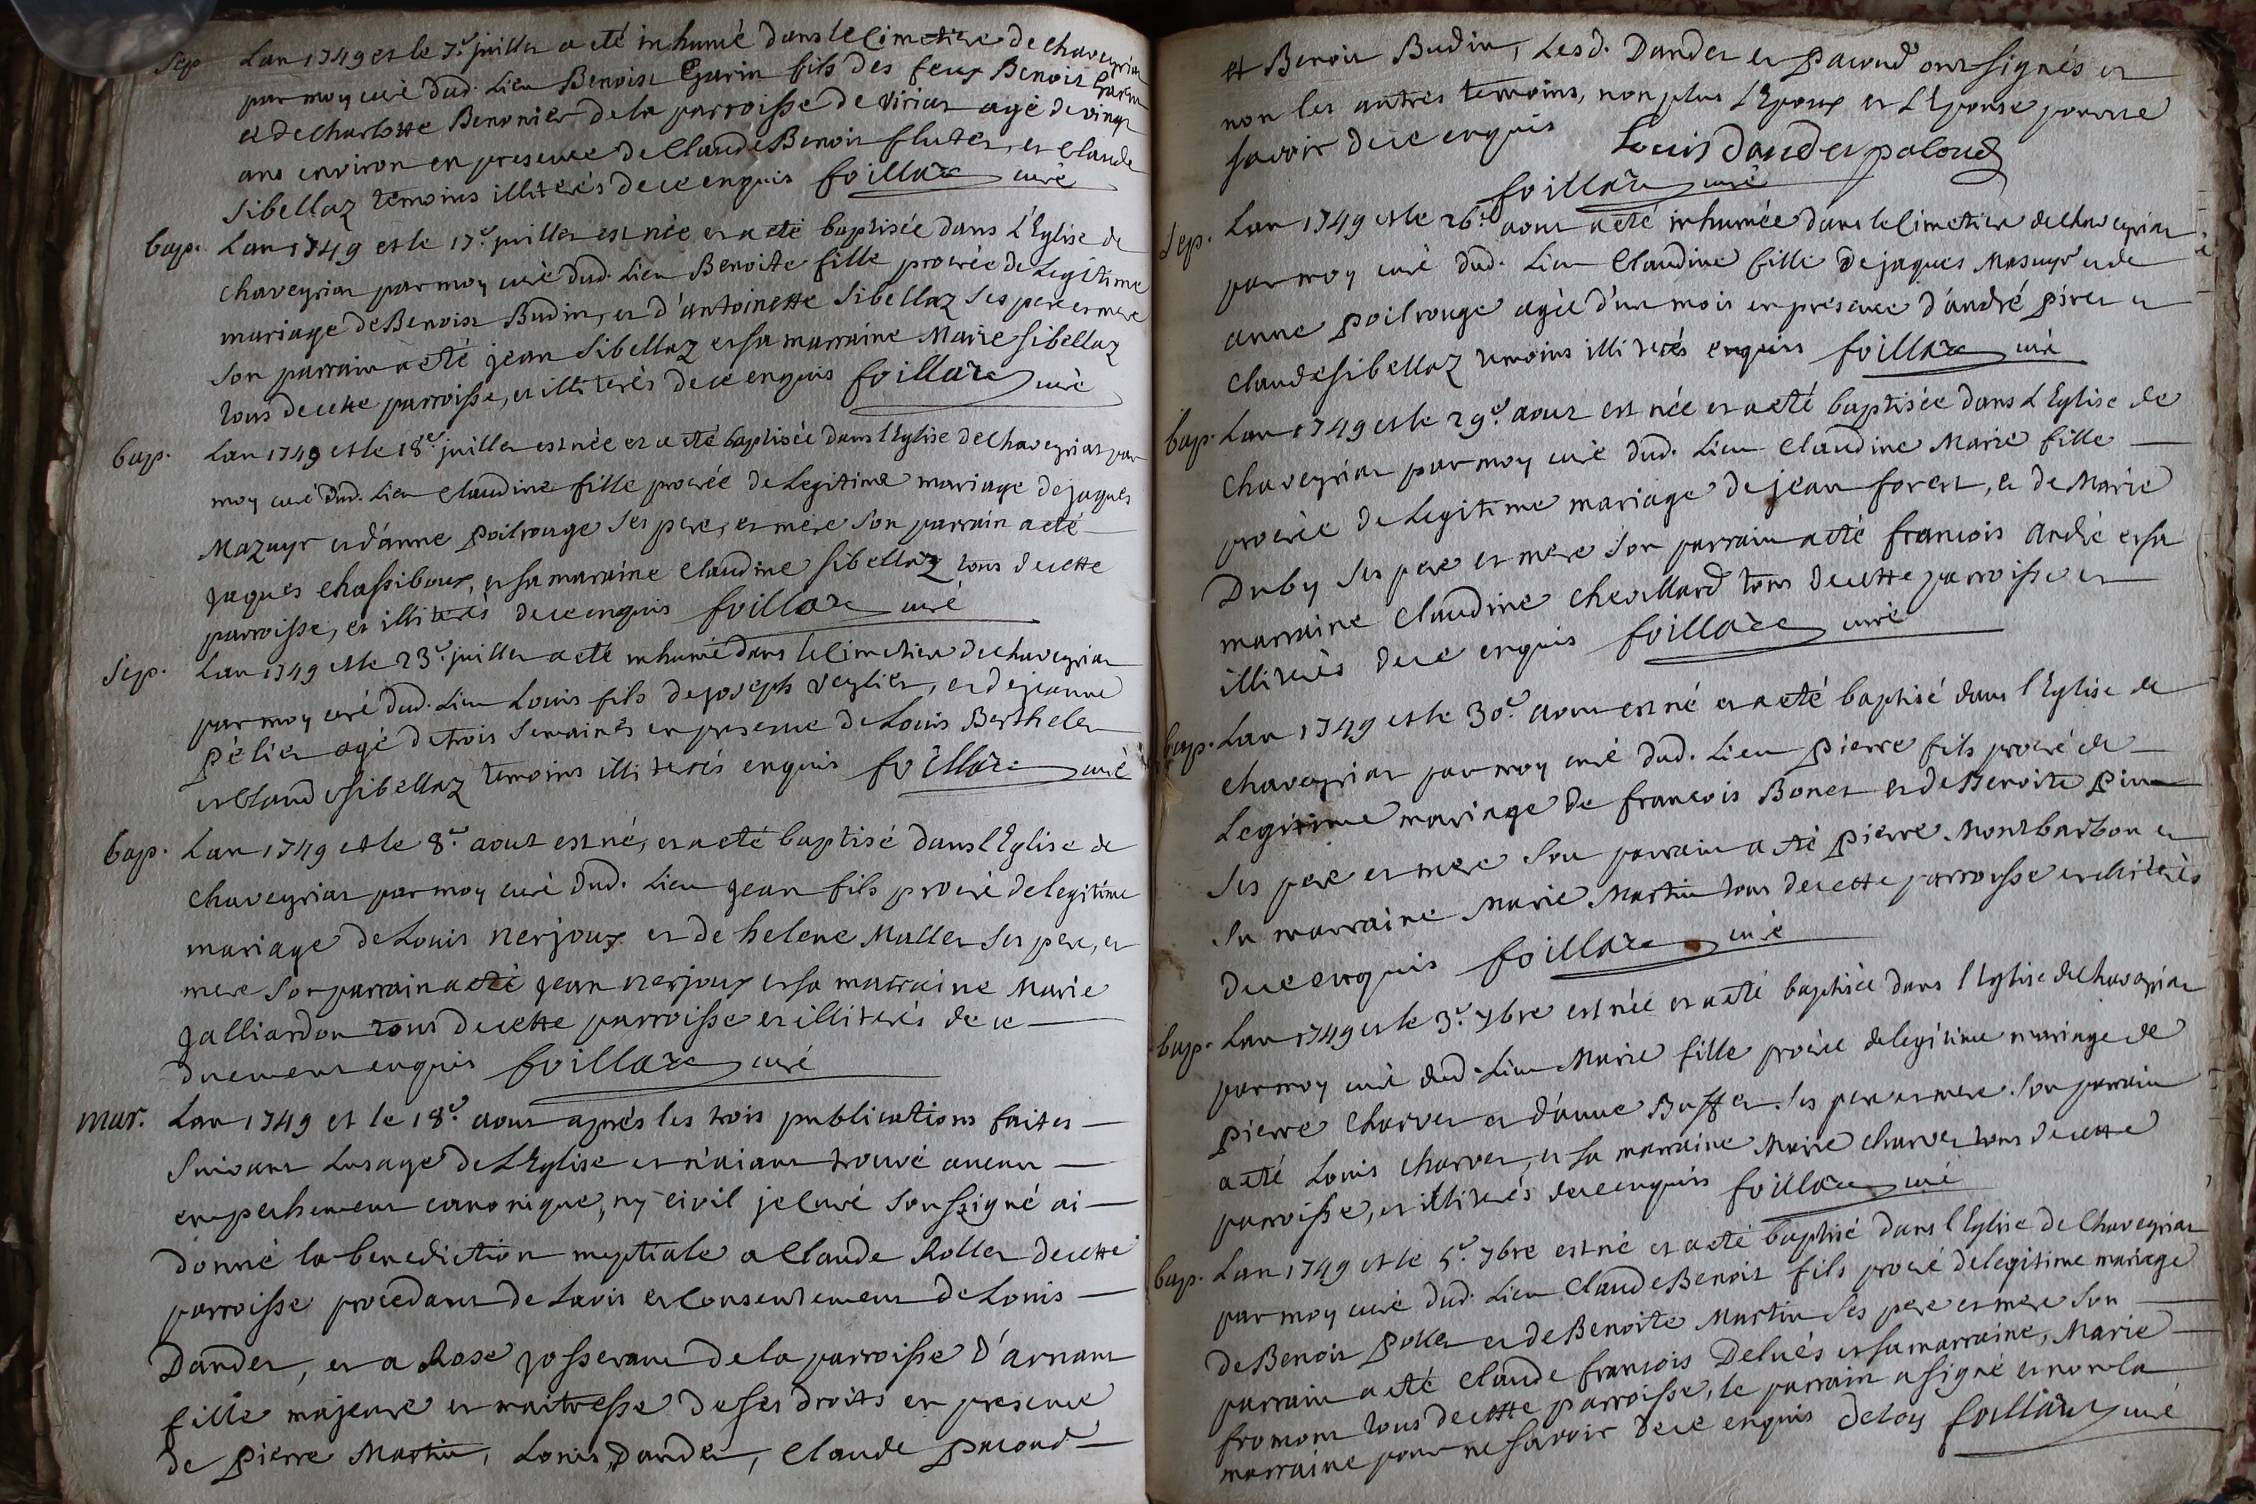 Sep Lan 1749 et le 7e juillet a eté inhumé dans le Cimetiere de chaveyriat
par moy curé dud. Lieu Benoist Garin fils des feux Benoist Garin
et de charlotte Benonier de la parroisse de viriat agé de vingt
ans environ en presence de Claude Benoist fluter, et Claude
Sibellaz temoins illiterés de ce enquis foillare curé
bap. Lan 1749 et le 17e juillet est née et a eté baptisée dans L'Eglise de
chaveyriat par moy curé dud. Lieu Benoite fille procréée de Legitime
mariage de Benoist Budin, et d'antoinette Sibellaz ses pere et mere
son parrain a eté jean Sibellaz et sa marraine Marie sibellaz
tous de cette parroisse, et illiterés de ce enquis foillare curé
bap. Lan 1749 et le 18e juillet est née et a eté baptisée dans l'Eglise de chaveyriat par
moy curé dud. Lieu Claudine fille procréée de Legitime mariage de jaques
Mazuyr et d'anne poilrouge ses pere, et mere son parrain a eté
jaques chassiboux, et sa marraine Claudine sibellaz tous de cette
parroisse, et illiterés de ce enquis foillare curé
Sep. Lan 1749 et le 23e juillet a eté inhumé dans le Cimetiere de chaveyriat
par moy curé dud. Lieu Louis fils de joseph veylier, et de jeanne
pélier agé de trois semaines en presence de Louis Berthelet
et Claude sibellaz temoins illiterés enquis foillare curé
bap. Lan 1749 et le 8e aout est né, et a eté baptisé dans l'Eglise de
chaveyriat par moy curé dud. Lieu jean fils procréé de legitime
mariage de Louis nerjoux et de helene Mullet ses pere, et
mere son parrain a eté jean nerjoux et sa marraine Marie
galliardon tous de cette parroisse et illiterés de ce
duement enquis foillare curé
mar. Lan 1749 et le 18e aout aprés les trois publications faites
suivant Lusage de L'Eglise et n'aiant trouvé aucun
empechement canonique, ny civil je Curé soussigné ai
donné la benediction nuptiale a Claude Rollet de cette
parroisse procedant de Lavis et Consentement de Louis
Dandet, et a Rose josserant de la parroisse d'arnant
fille majeure et maitresse de ses droits en presence
de pierre Martin, Louis Dandet, Claude pacoud
et Benoit Budin, Lesd. Dandet et pacoud ont signés et
non les autres temoins, non plus L'Epoux et L'Epouse pour ne
savoir de ce enquis Louis dandet pacoud
foillare curé
Sep. Lan 1749 et le 26e aout a eté inhumée dans le Cimetiere de chaveyriat
par moy curé dud. Lieu Claudine fille de jaques Masuyr et de
anne poilrouge agée d'un mois en presence d'andré piret et
Claude sibellaz temoins illiterés enquis foillare curé
bap. Lan 1749 et le 29e aout est née et a eté baptisée dans L'Eglise de
chaveyriat par moy curé dud. Lieu Claudine Marie fille
procréée de Legitime mariage de jean forest, et de Marie
Duby ses pere et mere son parrain a eté francois andré et sa
marraine Claudine chevillard tous de cette parroisse et
illiterés de ce enquis foillare curé
bap. Lan 1749 et le 30e aout est né et a eté baptisé dans l'Eglise de
chaveyriat par moy curé dud. Lieu pierre fils procréé de
Legitime mariage de francois Bonet et de Benoite
ses pere et mere son parrain a eté pierre Montbarbon et
sa marraine Marie Martin tous de cette parroisse et illiterés
de ce enquis foillare curé
bap. Lan 1749 et le 3e 7bre est née et a eté baptisée dans l'Eglise de chaveyriat
par moy curé dud. Lieu Marie fille procréée de legitime mariage de
pierre Charvet et d'anne Buffet ses pere et mere son parrain
a eté Louis charvet, et sa marraine Marie charvet tous de cette
parroisse, et illiterés de ce enquis foillare curé
bap. Lan 1749 et le 5e 7bre est né et a eté baptisé dans l'Eglise de Chaveyriat
par moy curé dud. Lieu Claude Benoit fils procréé de legitime mariage
de Benoit pollet et de Benoite Martin ses pere et mere son
parrain a eté Claude francois Delués et sa marraine, Marie
fromont tous de cette parroisse, le parrain a signé et non la
marraine pour ne savoir de ce enquis deloy foillare curé